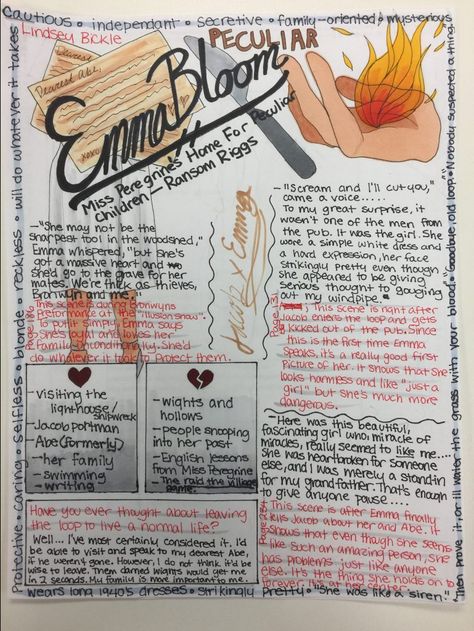 Cautious • independant • secretive • family-oriented • mysterious
Lindsey Bickle
PECULIAR
Dearest
Dearest Abe,
xoxo
Emma Bloom
Miss Peregrine's Home For Peculiar
Children - Ransom Riggs
-"She may not be the
sharpest tool in the woodshed,"
Emma whispered, "but she's
got a massive heart and
she'd go to the grave for her
mates. We're thick as thieves,
Bronwyn and me."
This scene is during Bronwyns
Preformance at the "illusion show".
To put it simply, Emma says
She's loyal and loves her
Family unconditionally. She'd
do whatever it took to protect them.
Jacob x Emma
-"Scream and I'll cut you,"
came a voice.....
To my great surprise, it
wasn't one of the men from
the pub. It was the girl. She
wore a simple white dress and
a hard expression, her face
strikingly pretty even though
she appeared to be giving
serious thought to gouging
out my windpipe.
Page 131
This scene is right after
Jacob enters the loop and gets
kicked out of the pub. Since
this is the first time Emma
speaks, it's a really good first
Picture of her. It shows that she
looks harmless and like "just a
girl" but she's much more
dangerous.
- visiting the
lighthouse/
shipwreck
- Jacob portman
- Abe (formerly)
- her family
- swimming
- writing
- wights and
hollows
- people snooping
into her past
- English lessons
from Miss Peregrine
- The raid the village
game.
-Here was this beautiful,
fascinating girl who, miracle of
miracles, really seemed to like me....
She was heartbroken for someone
else, and I was merely a standin
for my grandfather. That's enough
to give anyone pause....
This scene is after Emma finally
tells Jacob about her and Abe. It
shows that even though she seems
like such an amazing person, she
has problems just like anyone
else. It's the thing she holds on to
forever. It's at her center.
Have you ever thought about leaving
the loop to live a normal life?
Well... I've most certainly considered it. I'd
be able to visit and speak to my dearest Abe,
if he weren't gone. However, I do not think it'd be
wise to leave. Them darned wights would get me
in 2 seconds. My family is more important to me.
wears long 1940's dresses • strikingly pretty • "She was like a siren."
Protective • caring • selfless • blonde • reckless • will do whatever it takes